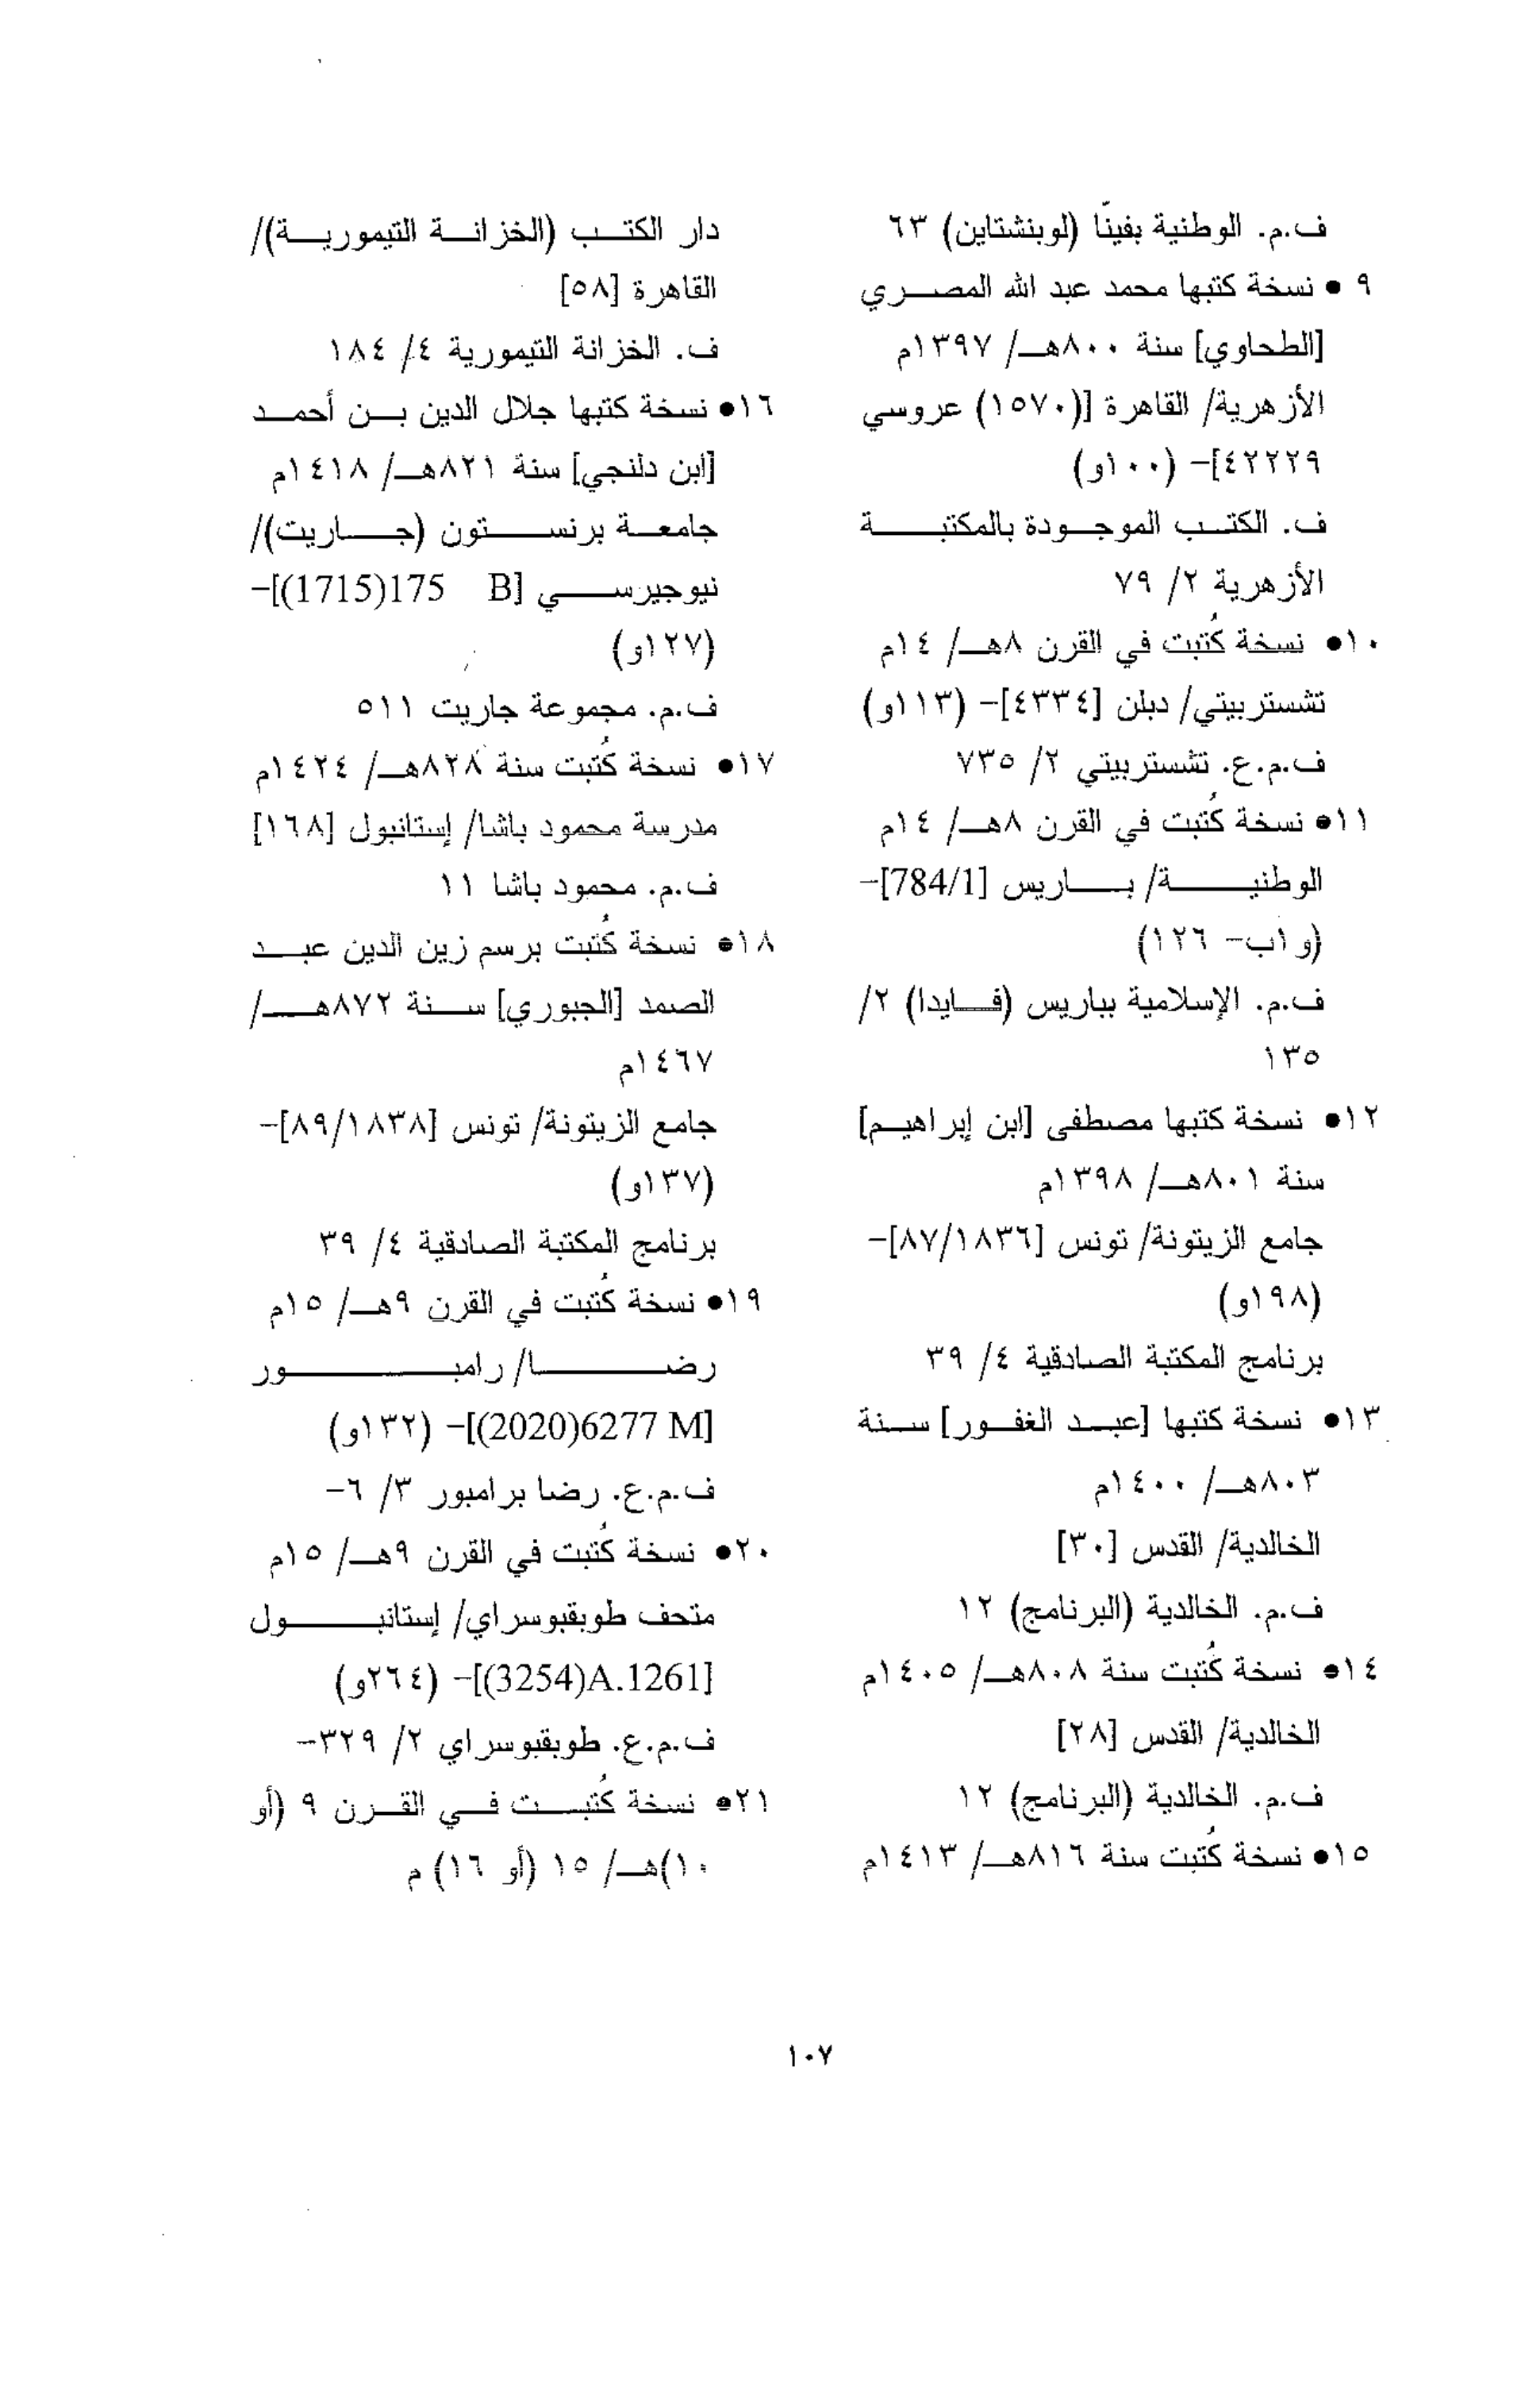 ف.م. الوطنية بفينّا (لوبنشتاين) ٦٣
٩ • نسخة كتبها محمد عبد الله المصري
[الطحاوي] سنة ٨٠٠هـ/ ١٣٩٧م
الأزهرية/ القاهرة [(١٥٧٠) عروسي
٤٢٢٢٩]- (١٠٠و)
ف. الكتب الموجودة بالمكتبة
الأزهرية ٢/ ٧٩
١٠• نسخة كُتبت في القرن ٨هـ/ ١٤م
تشستربيتي/ دبلن [٤٣٣٤]- (١١٣و)
ف.م.ع. تشستربيتي ٢/ ٧٣٥
١١• نسخة كُتبت في القرن ٨هـ/ ١٤م
الوطنية/ باريس [784/1]-
(و١ب- ١٢٦)
ف.م. الإسلامية بباريس (فايدا) ٢/
١٣٥
١٢• نسخة كتبها مصطفى [ابن إبراهيم]
سنة ٨٠١هـ/ ١٣٩٨م
جامع الزيتونة/ تونس [٨٧/١٨٣٦]-
(١٩٨و)
برنامج المكتبة الصادقية ٤/ ٣٩
١٣• نسخة كتبها [عبد الغفور] سنة
٨٠٣هـ/ ١٤٠٠م
الخالدية/ القدس [٣٠]
ف.م. الخالدية (البرنامج) ١٢
١٤• نسخة كُتبت سنة ٨٠٨هـ/ ١٤٠٥م
الخالدية/ القدس [٢٨]
ف.م. الخالدية (البرنامج) ١٢
١٥• نسخة كُتبت سنة ٨١٦هـ/ ١٤١٣م
دار الكتب (الخزانة التيمورية)/
القاهرة [٥٨]
ف. الخزانة التيمورية ٤/ ١٨٤
١٦• نسخة كتبها جلال الدين بن أحمد
[ابن دلنجي] سنة ٨٢١هـ/ ١٤١٨م
جامعة برنستون (جاريت)/
نيوجيرسي [175(1715) B]-
(١٢٧و)
ف.م. مجموعة جاريت ٥١١
١٧• نسخة كُتبت سنة ٨٢٨هـ/ ١٤٢٤م
مدرسة محمود باشا/ إستانبول [١٦٨]
ف.م. محمود باشا ١١
١٨• نسخة كُتبت برسم زين الدين عبد
الصمد [الجبوري] سنة ٨٧٢هـ/
١٤٦٧م
جامع الزيتونة/ تونس [٨٩/١٨٣٨]-
(١٣٧و)
برنامج المكتبة الصادقية ٤/ ٣٩
١٩• نسخة كُتبت في القرن ٩هـ/ ١٥م
رضا/ رامبور
[6277 M(2020)]- (١٣٢و)
ف.م.ع. رضا برامبور ٣/ ٦-
٢٠• نسخة كُتبت في القرن ٩هـ/ ١٥م
متحف طوبقبوسراي/ إستانبول
[A.1261(3254)]- (٢٦٤و)
ف.م.ع. طوبقبوسراي ٢/ ٣٢٩-
٢١• نسخة كُتبت في القرن ٩ (أو
١٠)هـ/ ١٥ (أو ١٦) م
١٠٧